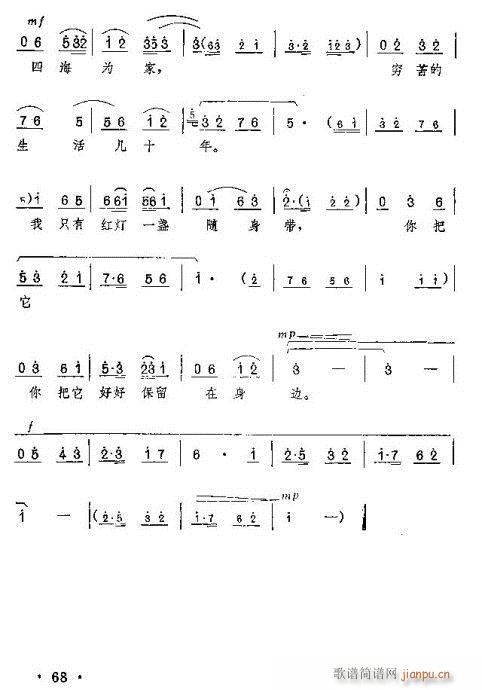 mf
0 6 5 3 2 | 1 2 3 5 3 | 3 (6 3 2 1 | 3 · 2 1 2 3 2) | 0 2 3 2
四海为家， 穷苦的
7 6 5 | 5 6 1 2 | 5 3 2 7 6 | 5 · (6 1 | 3 2 7 6
生活几十年。
5) 1 6 5 | 6 6 1 5 6 1 | 0 1 6 3 | 2 · (1 2 2) | 0 3 6
我只有红灯一盏随身带， 你把
5 3 2 1 | 7 · 6 5 6 | 1 · (2 | 7 6 5 6 | 1 1 1)
它
mp
0 3 6 1 | 5 · 3 2 3 1 | 0 6 1 2 | 3 — | 3 — |
你把它好好保留在身边。
f
0 5 4 3 | 2 · 3 1 7 | 6 · 1 | 2 · 5 3 2 | 1 · 7 6 2 |
mp
1 — | (2 · 5 3 2 | 1 · 7 6 2 | 1 —) |
· 68 ·
歌谱简谱网
jianpu.cn